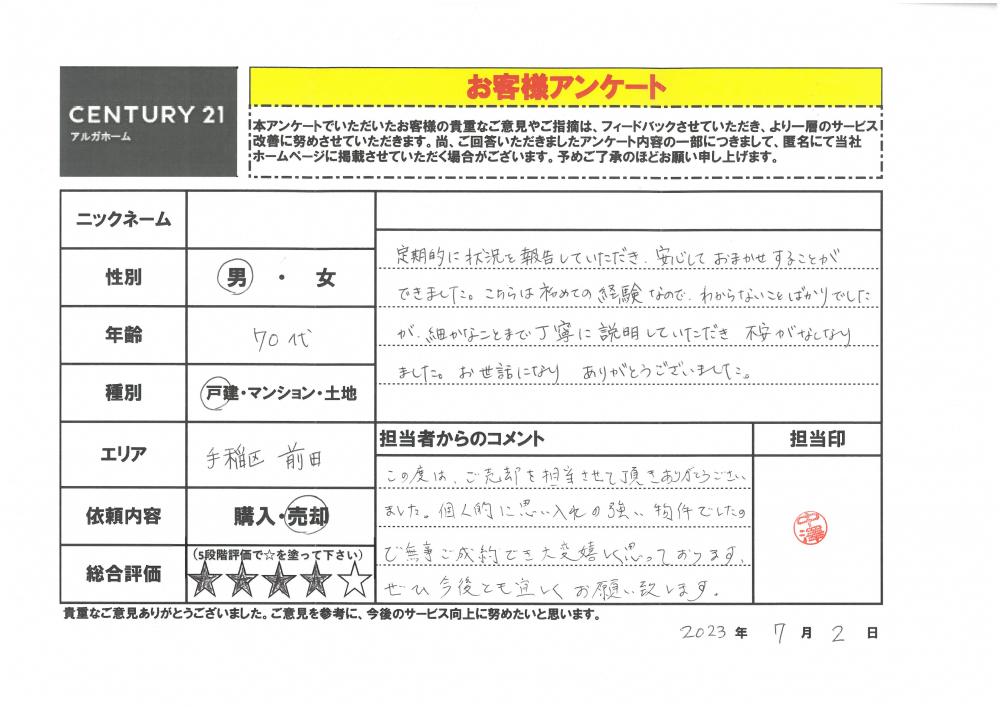 お客様アンケート
CENTURY 21
アルガホーム
本アンケートでいただいたお客様の貴重なご意見やご指摘は、フィードバックさせていただき、より一層のサービス
改善に努めさせていただきます。尚、ご回答いただきましたアンケート内容の一部につきまして、匿名にて当社
ホームページに掲載させていただく場合がございます。予めご了承のほどお願い申し上げます。
ニックネーム
性別
男 ・ 女
年齢
70代
種別
戸建・マンション・土地
エリア
手稲区 前田
依頼内容
購入・売却
総合評価
(5段階評価で☆を塗って下さい)
★★★★☆
定期的に状況を報告していただき、安心しておまかせすることが
できました。こちらは初めての経験なので、わからないことばかりでした
が、細かなことまで丁寧に説明していただき 不安がなくなり
ました。お世話になり ありがとうございました。
担当者からのコメント
担当印
この度は、ご売却を担当させて頂きありがとうござい
ました。個人的に思い入れの強い物件でしたの
で無事ご成約でき大変嬉しく思っております。
ぜひ今後とも宜しくお願い致します。
中澤
貴重なご意見ありがとうございました。ご意見を参考に、今後のサービス向上に努めたいと思います。
2023 年 7 月 2 日